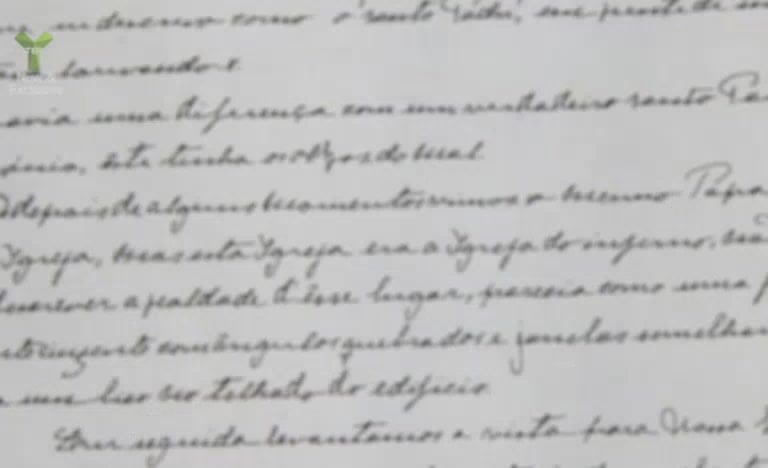 como o santo Padre, em frente de
louvando-o.
havia uma diferença com um verdadeiro santo Pa
ónio, este tinha os olhos do mal.
depois de alguns momentos vimos o mesmo Papa
Igreja, mas esta Igreja era a Igreja do inferno, não
descrever a fealdade d'êsse lugar, parecia como uma f
cimento com ângulos quebrados e janelas semelhan
um bico no telhado do edificio.
Em seguida levantamos a vista para Nossa